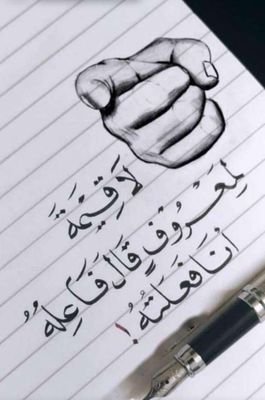 لَا قِيمَةَ
لِمَعْرُوفٍ قَالَ فَاعِلُهُ
أنَا فَعَلتهُ !